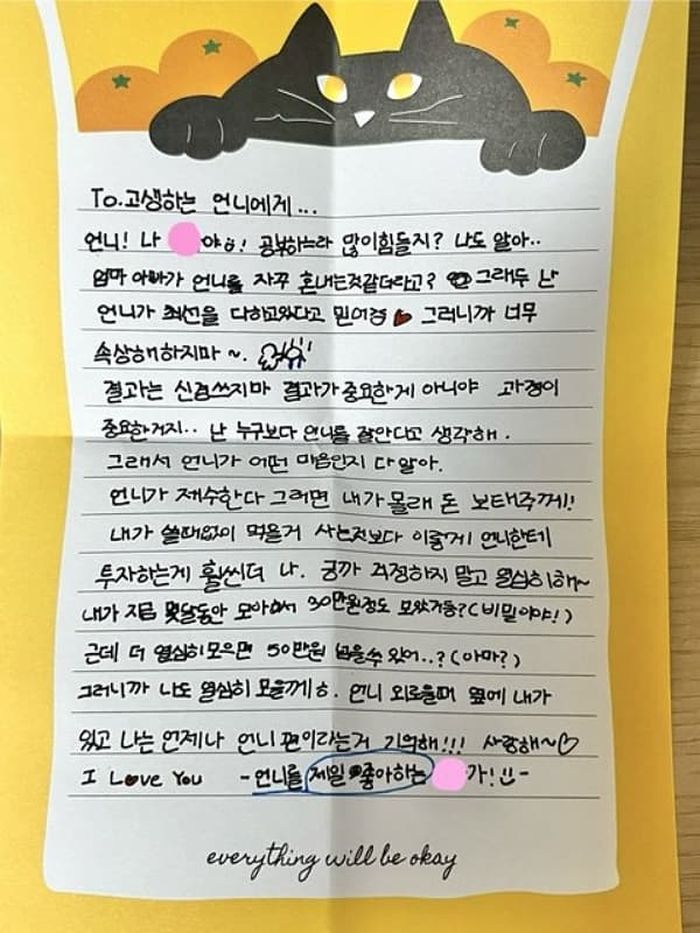 To.고생하는 언니에게...
언니! 나 야ㅎ! 공부하느라 많이힘들지? 나도 알아..
엄마 아빠가 언니를 자꾸 혼내는것같더라고? 그래두 난
언니가 최선을 다하고있다고 믿어경 그러니까 너무
속상해하지마~.
결과는 신경쓰지마 결과가 중요한게 아니야 과정이
중요한거지.. 난 누구보다 언니를 잘안다고 생각해.
그래서 언니가 어떤 마음인지 다 알아.
언니가 재수한다 그러면 내가 몰래 돈 보태주께!!
내가 쓸때없이 먹을거 사는것보다 이렇게 언니한테
투자하는게 훨씬더 나. 긍까 걱정하지 말고 열심히해~
내가 지금 몇달동안 모아서 30만원정도 모았거등?(비밀이야!)
근데 더 열심히모으면 50만원 넘을수 있어..?(아마?)
그러니까 나도 열심히 모을께ㅎ. 언니 외로울때 옆에 내가
있고 나는 언제나 언니편이라는거 기억해!!! 사랑해~♡
I Love You -언니를 제일 좋아하는 가!-
everything will be okay